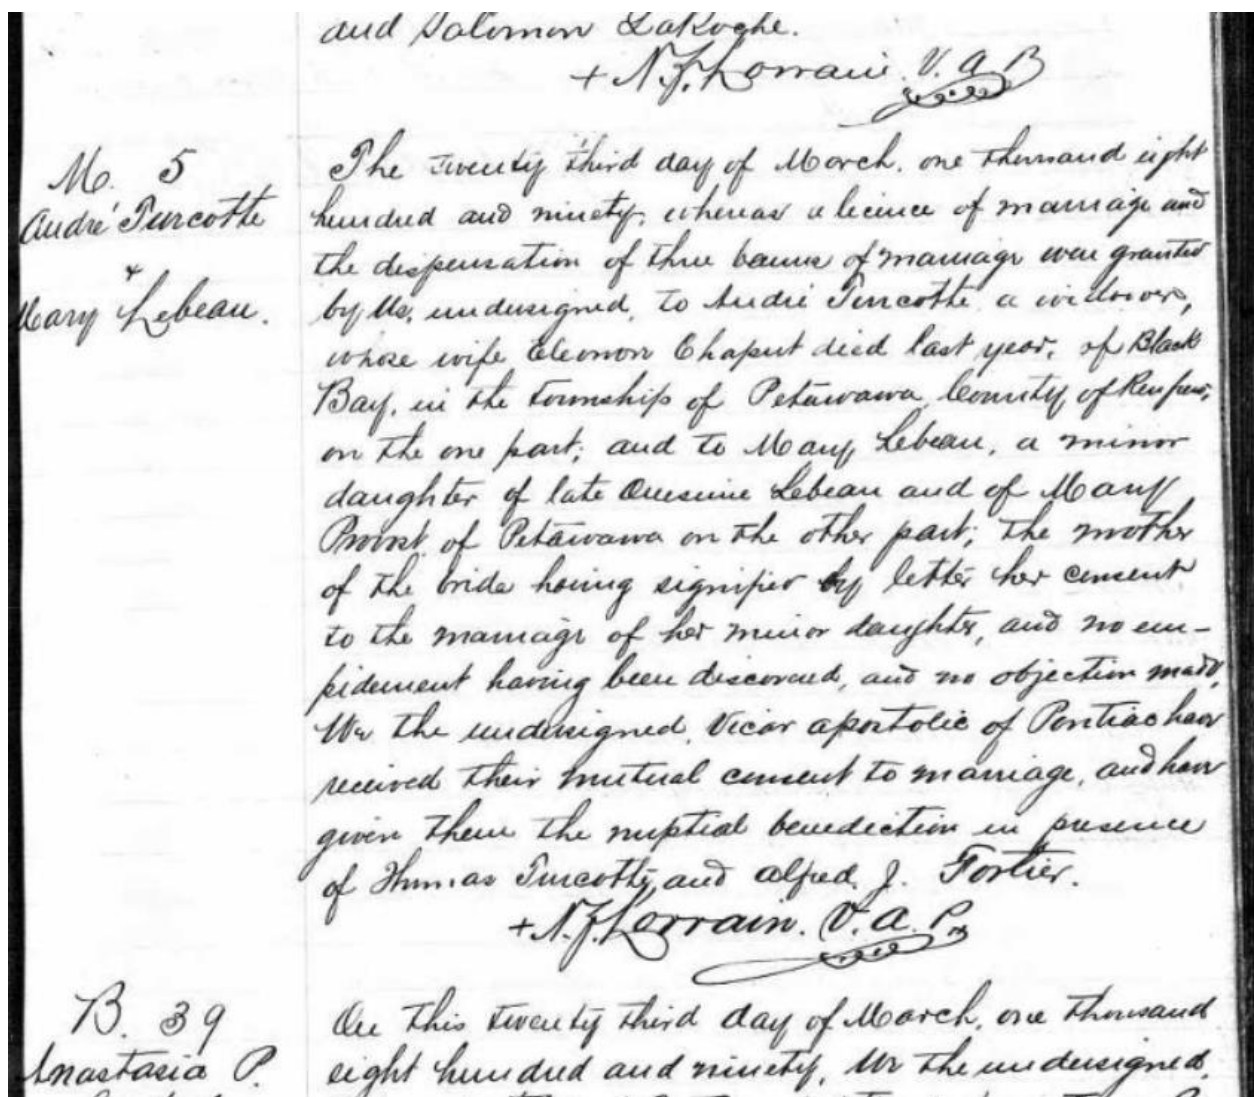 and Salomon LaRoche.
+ N.Z. Lorrain. V. A. P.
M. 5
André Turcotte
&
Mary Lebeau.
The twenty third day of March, one thousand eight
hundred and ninety, whereas a licence of marriage and
the dispensation of three banns of marriage were granted
by Us, undersigned, to André Turcotte, a widower,
whose wife Eleonor Chaput died last year, of Black
Bay, in the township of Petawawa, County of Renfrew,
on the one part; and to Mary Lebeau, a minor
daughter of late Onesime Lebeau and of Mary
Provost of Petawawa on the other part; the mother
of the bride having signified by letter her consent
to the marriage of her minor daughter, and no em-
pidement having been discovered, and no objection made,
We the undersigned, Vicar apostolic of Pontiac have
received their mutual consent to marriage, and have
given them the nuptial benediction in presence
of Thomas Turcotte, and alfred J. Fortier.
+ N.Z. Lorrain. V. A. P.
B. 39
Anastasia P.
On this twenty third day of March, one thousand
eight hundred and ninety, We the undersigned,